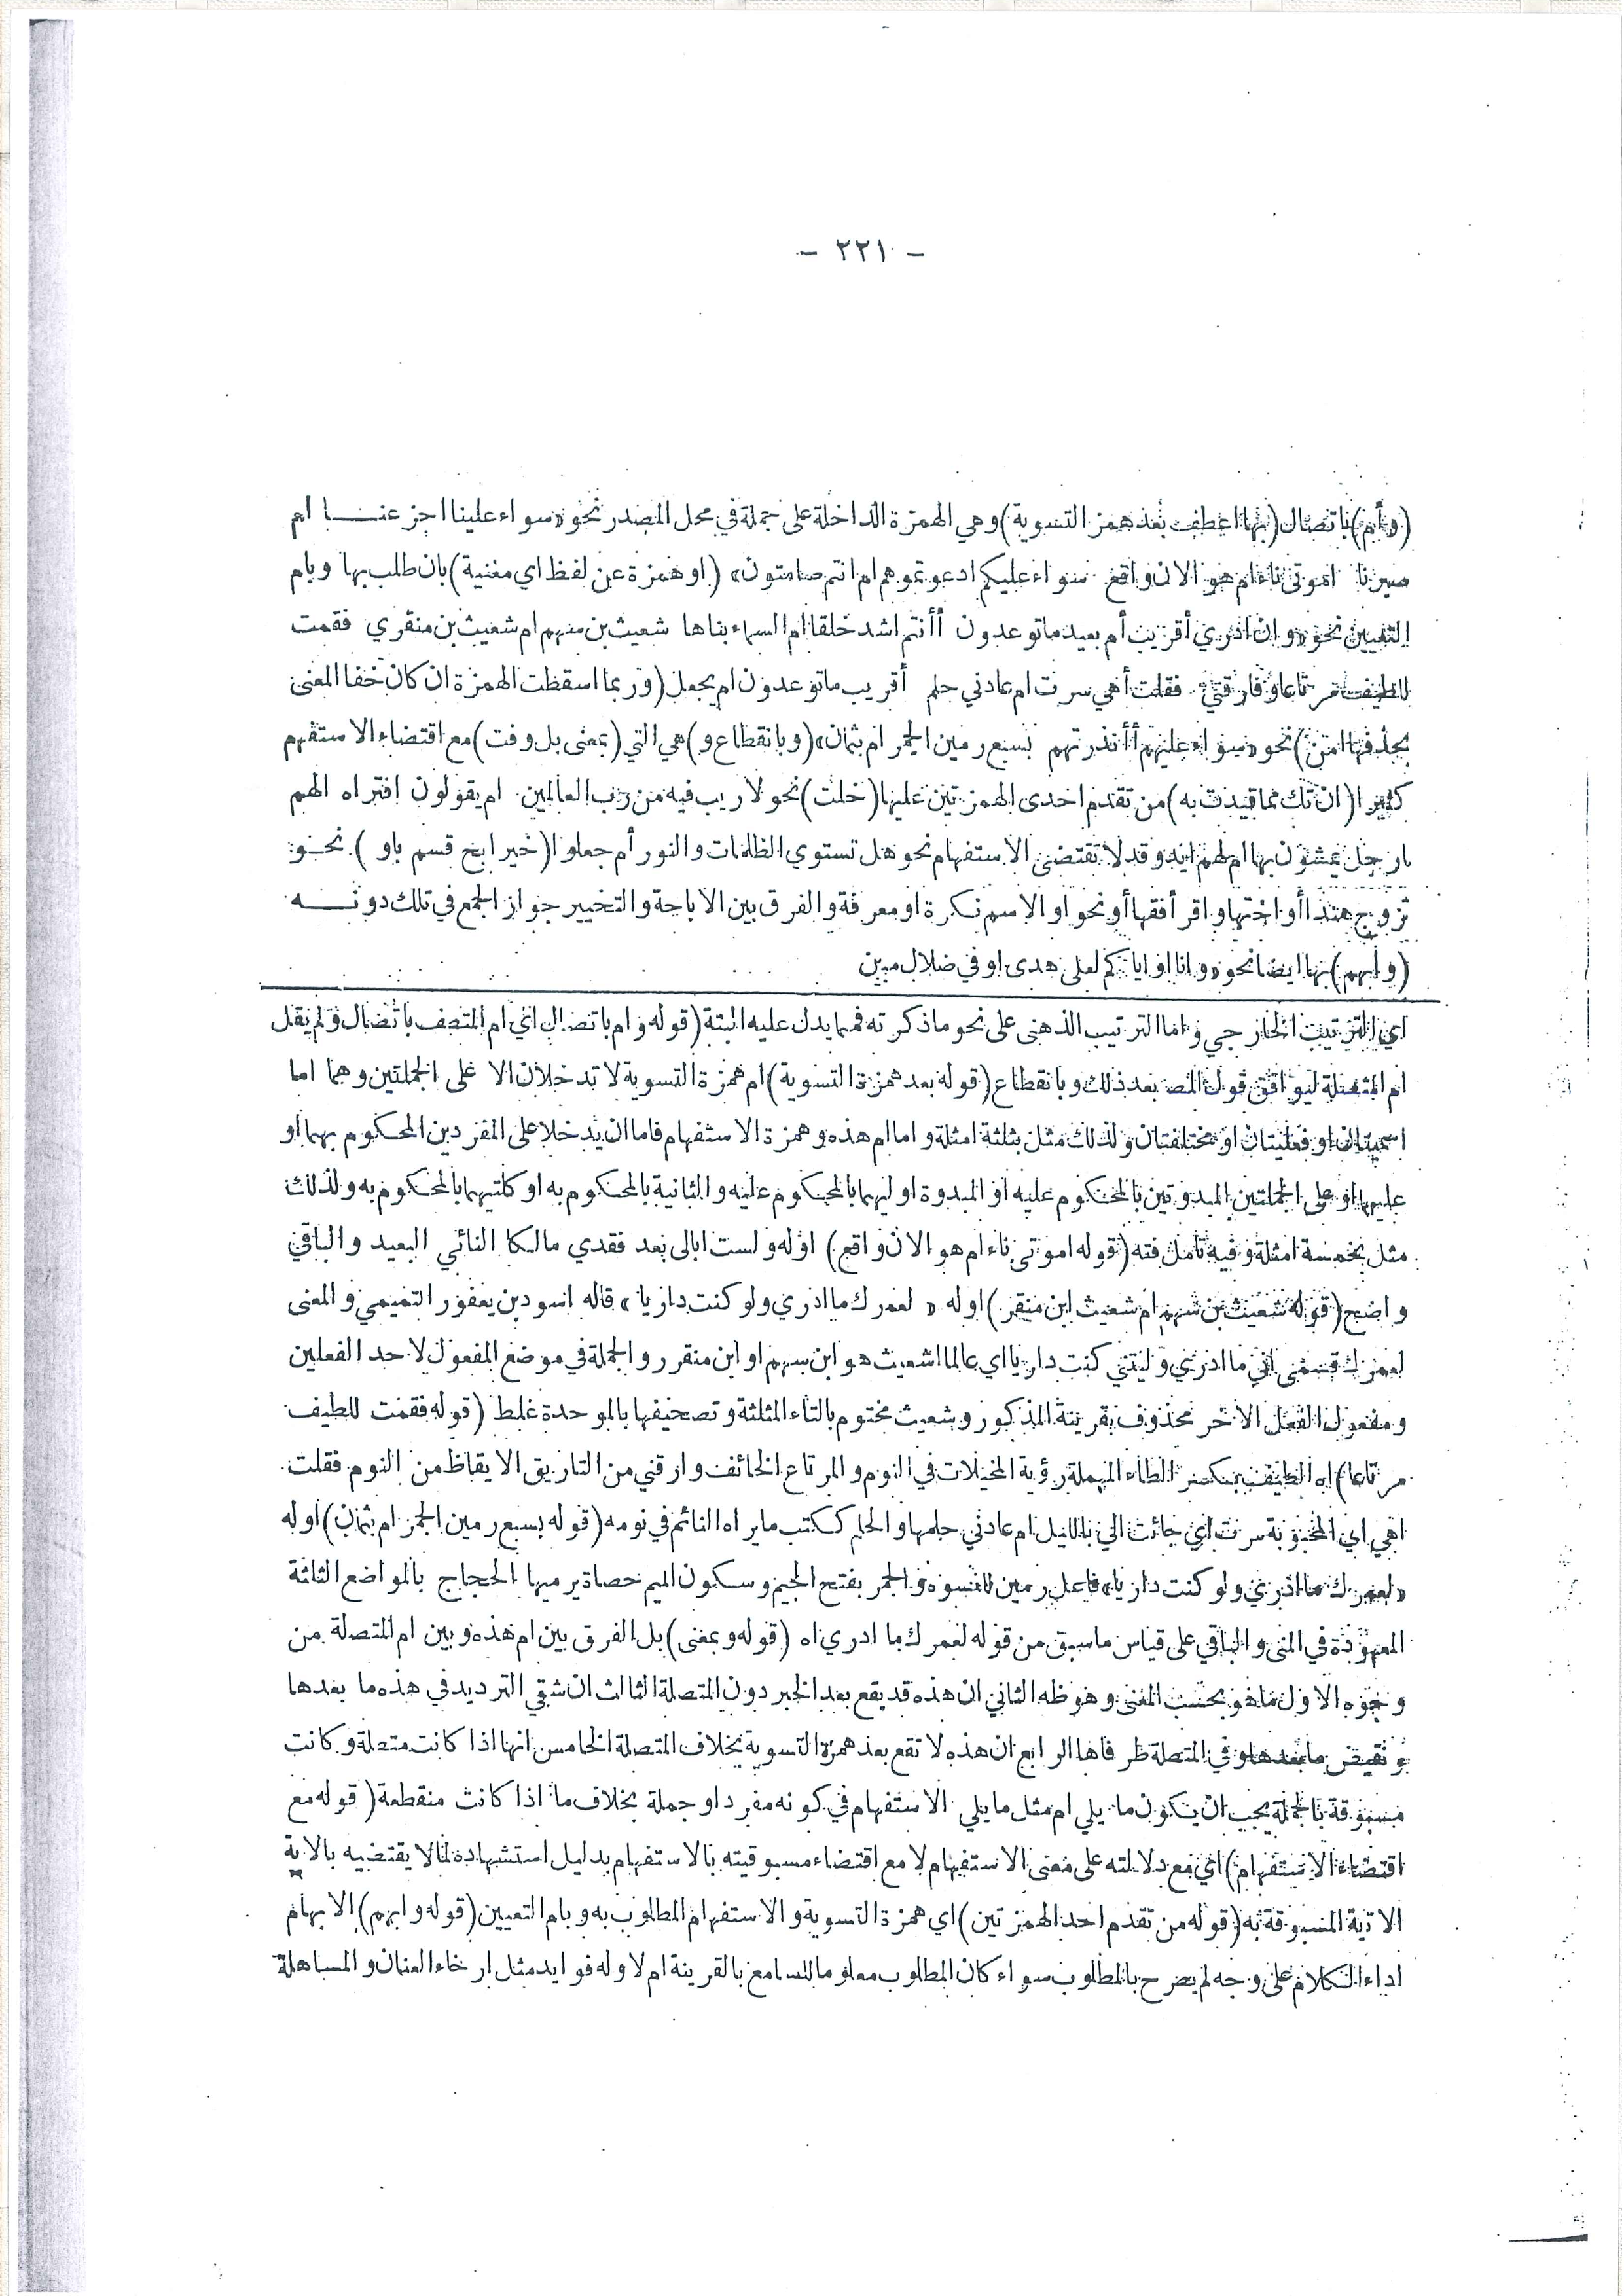 - ٢٢١ -
(وأم) باتصال (بها اعطف بعد همز التسوية) وهي الهمزة الداخلة على جملة في محل المصدر نحو «سواء علينا اجزعنا ام
صبرنا اموتى ناء ام هو الان واقع سواء عليكم ادعوتموهم ام انتم صامتون» (او همزة عن لفظ اي مغنية) بان طلب بها وبام
التعيين نحو «وان ادري أقريب أم بعيد ماتوعدون أأنتم اشد خلقا ام السماء بناها شعيث بن سهم ام شعيث بن منقري فقمت
للطيف مرتاعا وفارقتي فقلت أهي سرت ام عادني حلم أقريب ماتوعدون ام يجعل (وربما اسقطت الهمزة ان كان خفا المعنى
بحذفها امن) نحو «سواء عليهم أأنذرتهم بسبع رمين الجمر ام بثمان» (وبانقطاع و) هي التي (بمعنى بل وفت) مع اقتضاء الاستفهم
كثيرا (ان تك مما قيدت به) من تقدم احدى الهمزتين عليها (خلت) نحو لاريب فيه من رب العالمين. ام يقولون افتراه الهم
ارجل يمشون بها ام لهم ايد وقد لا تقتضى الاستفهام نحو هل تستوي الظلمات والنور أم جعلوا (خير ابح قسم باو) نحو
تزوج هندا أو اختها واقرأ فقها أو نحوا او الاسم نكرة او معرفة والفرق بين الاباحة والتخيير جواز الجمع في تلك دونه
(وابهم) بها ايضا نحو «وانا او اياكم لعلى هدى او في ضلال مبين
اي الترتيب الخارجي واما الترتيب الذهنى على نحو ماذكرته فما يدل عليه البتة (قوله وام باتصال اي ام المتصف باتصال ولم يقل
ام المتصلة ليوافق قول المصـ بعد ذلك وبانقطاع (قوله بعد همزة التسوية) ام همزة التسوية لا تدخلان الا على الجملتين وهما اما
اسميتان او فعليتان او مختلفتان ولذلك مثل بثلثة امثلة واما ام هذه وهمزة الاستفهام فاما ان يدخلا على المفردين المحكوم بهما او
عليهما او على الجملتين المبدوتين بالمحكوم عليه او المبدوة اوليهما بالمحكوم عليه والثانية بالمحكوم به او كلتيهما بالمحكوم به ولذلك
مثل بخمسة امثلة وفيه تامل فته (قوله اموتى ناء ام هو الان واقع) اوله ولست ابالى بعد فقدي مالكا النائي البعيد والباقي
واضح (قوله شعيث بن سهم ام شعيث ابن منقر) اوله « لعمرك ما ادري ولو كنت داريا » قاله اسود بن يعفور التميمي والمعنى
لعمرك قسمى اني ما ادري وليتني كنت داريا اي عالما اشعيث هو ابن سهم او ابن منقر والجملة في موضع المفعول لاحد الفعلين
ومفعول الفعل الاخر محذوف بقرينة المذكور وشعيث مختوم بالثاء المثلثة وتصحيفها بالموحدة غلط (قوله فقمت للطيف
مرتاعا) اه الطيف بكسر الطاء المهملة رؤية المخيلات في النوم والمرتاع الخائف وارقني من التاريق الايقاظ من النوم فقلت
اهي اي المحبوبة سرت اي جائت الي بالليل ام عادني حلمها والحلم ككتب ما يراه النائم في نومه (قوله بسبع رمين الجمر ام بثمان) اوله
«لعمرك ما ادري ولو كنت داريا» فاعل رمين للنسوة والجمر بفتح الجيم وسكون الميم حصاة يرميها الحجاج بالمواضع الثلثة
المعهودة في المنى والباقي على قياس ما سبق من قوله لعمرك ما ادري اه (قوله وبمعنى) بل الفرق بين ام هذه وبين ام المتصلة من
وجوه الاول ما هو بحسب المعنى وهو ظه الثاني ان هذه قد يقع بعد الخبر دون المتصلة الثالث ان شقي الترديد في هذه ما بعدها
ونقيض ما بعدها وفي المتصلة طرفاها الرابع ان هذه لا تقع بعد همزة التسوية بخلاف المتصلة الخامس انها اذا كانت متصلة وكانت
مسبوقة بالجملة يجب ان يكون ما يلي ام مثل ما يلي الاستفهام في كونه مفردا او جملة بخلاف ما اذا كانت منقطعة (قوله مع
اقتضاء الاستفهام) اي مع دلالته على معنى الاستفهام لا مع اقتضاء مسبوقيته بالاستفهام بدليل استشهاده لما لا يقتضيه بالاية
الاتية المسبوقة به (قوله من تقدم احد الهمزتين) اي همزة التسوية والاستفهام المطلوب به وبام التعيين (قوله وابهم) الابهام
اداء الكلام على وجه لم يصرح بالمطلوب سواء كان المطلوب معلوما للسامع بالقرينة ام لا وله فوايد مثل ارخاء العنان والمساهلة